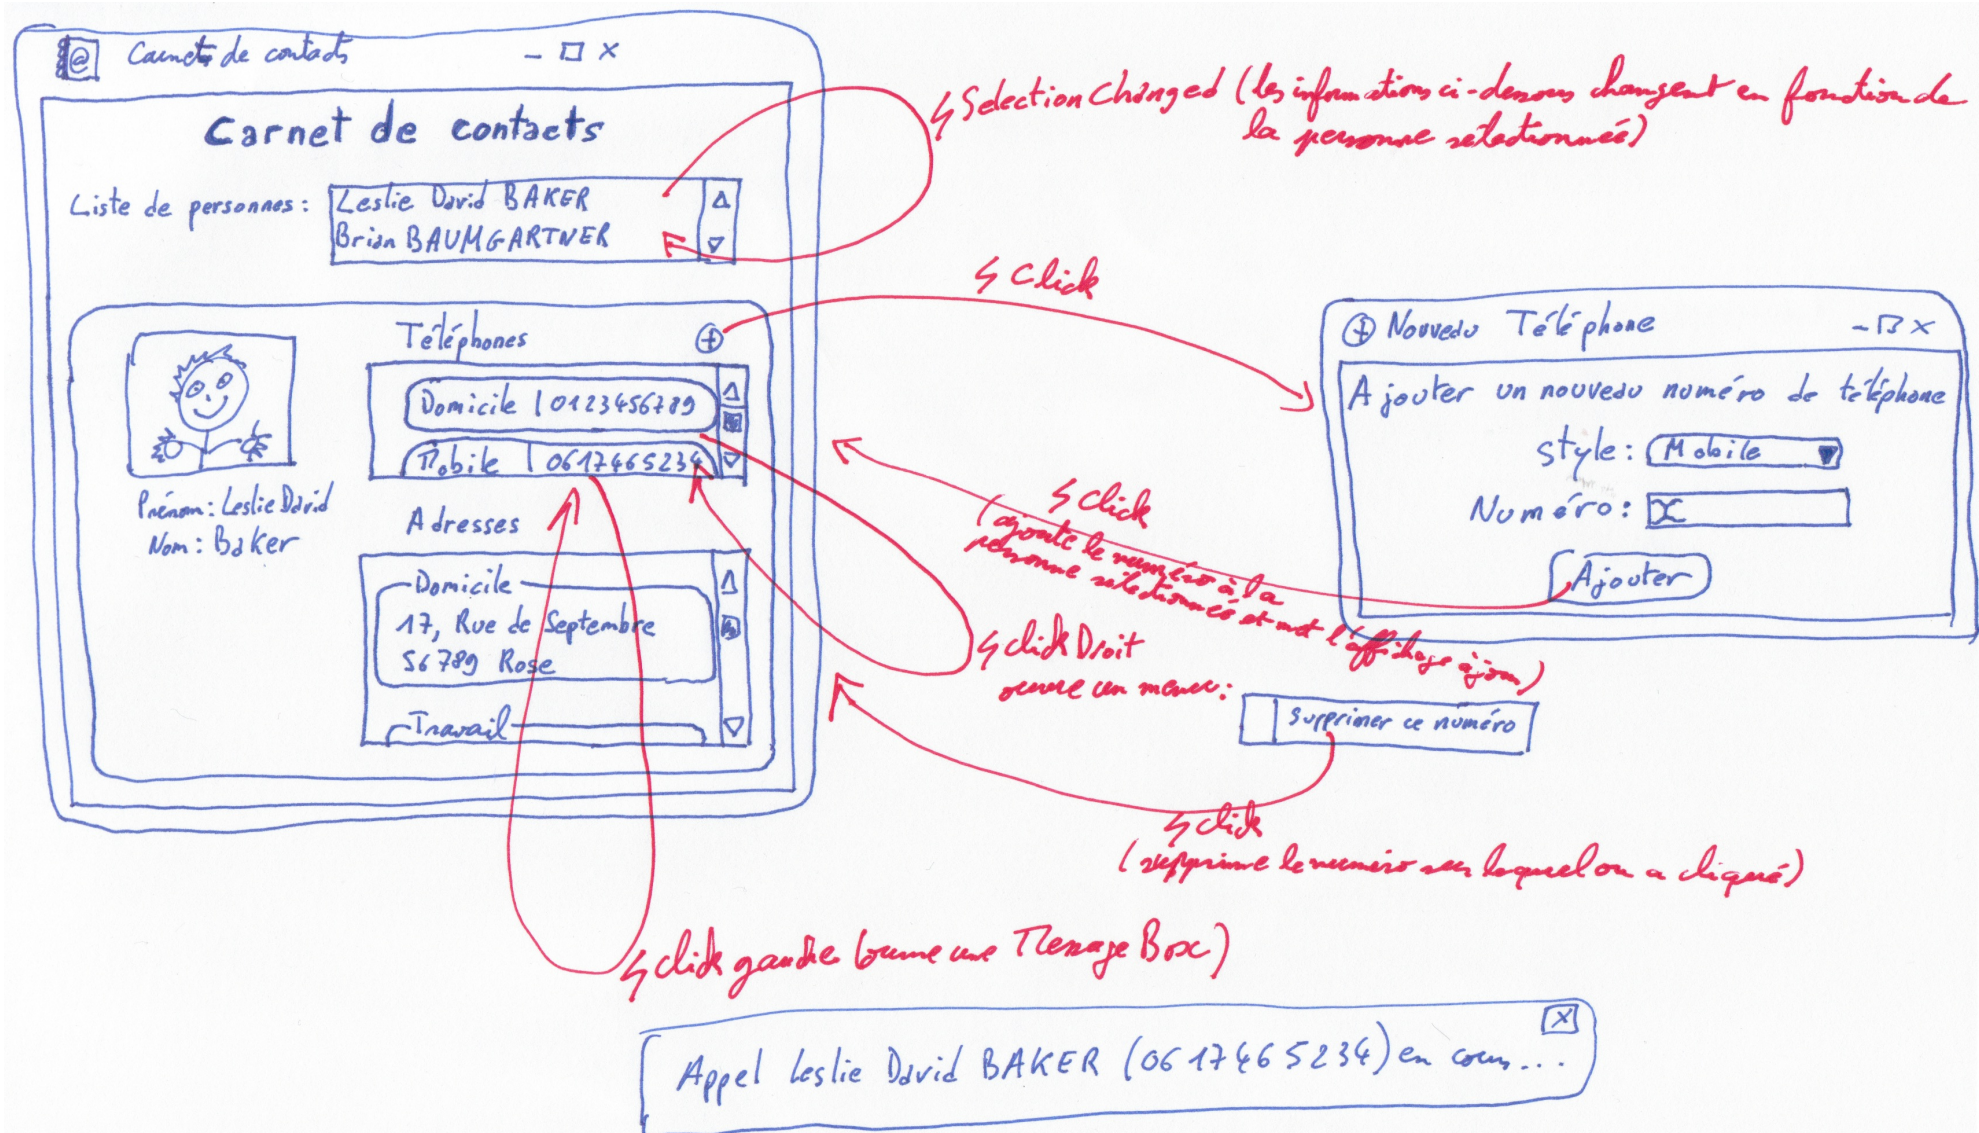 @ Carnet de contacts
Carnet de contacts
Liste de personnes :
Leslie David BAKER
Brian BAUMGARTNER
Téléphones +
Domicile | 0123456789
Mobile | 0617465234
Prénom : Leslie David
Nom : Baker
Adresses
Domicile
17, Rue de Septembre
56789 Rose
Travail
SelectionChanged (les informations ci-dessous changent en fonction de
la personne sélectionnée)
Click
+ Nouveau Téléphone
Ajouter un nouveau numéro de téléphone
style : Mobile
Numéro : x
Ajouter
Click
(ajoute le numéro à la
personne sélectionnée et met l'affichage à jour)
click Droit
ouvre un menu :
supprimer ce numéro
click
(supprime le numéro sur lequel on a cliqué)
click gauche (ouvre une MessageBox)
X
Appel Leslie David BAKER (0617465234) en cours...